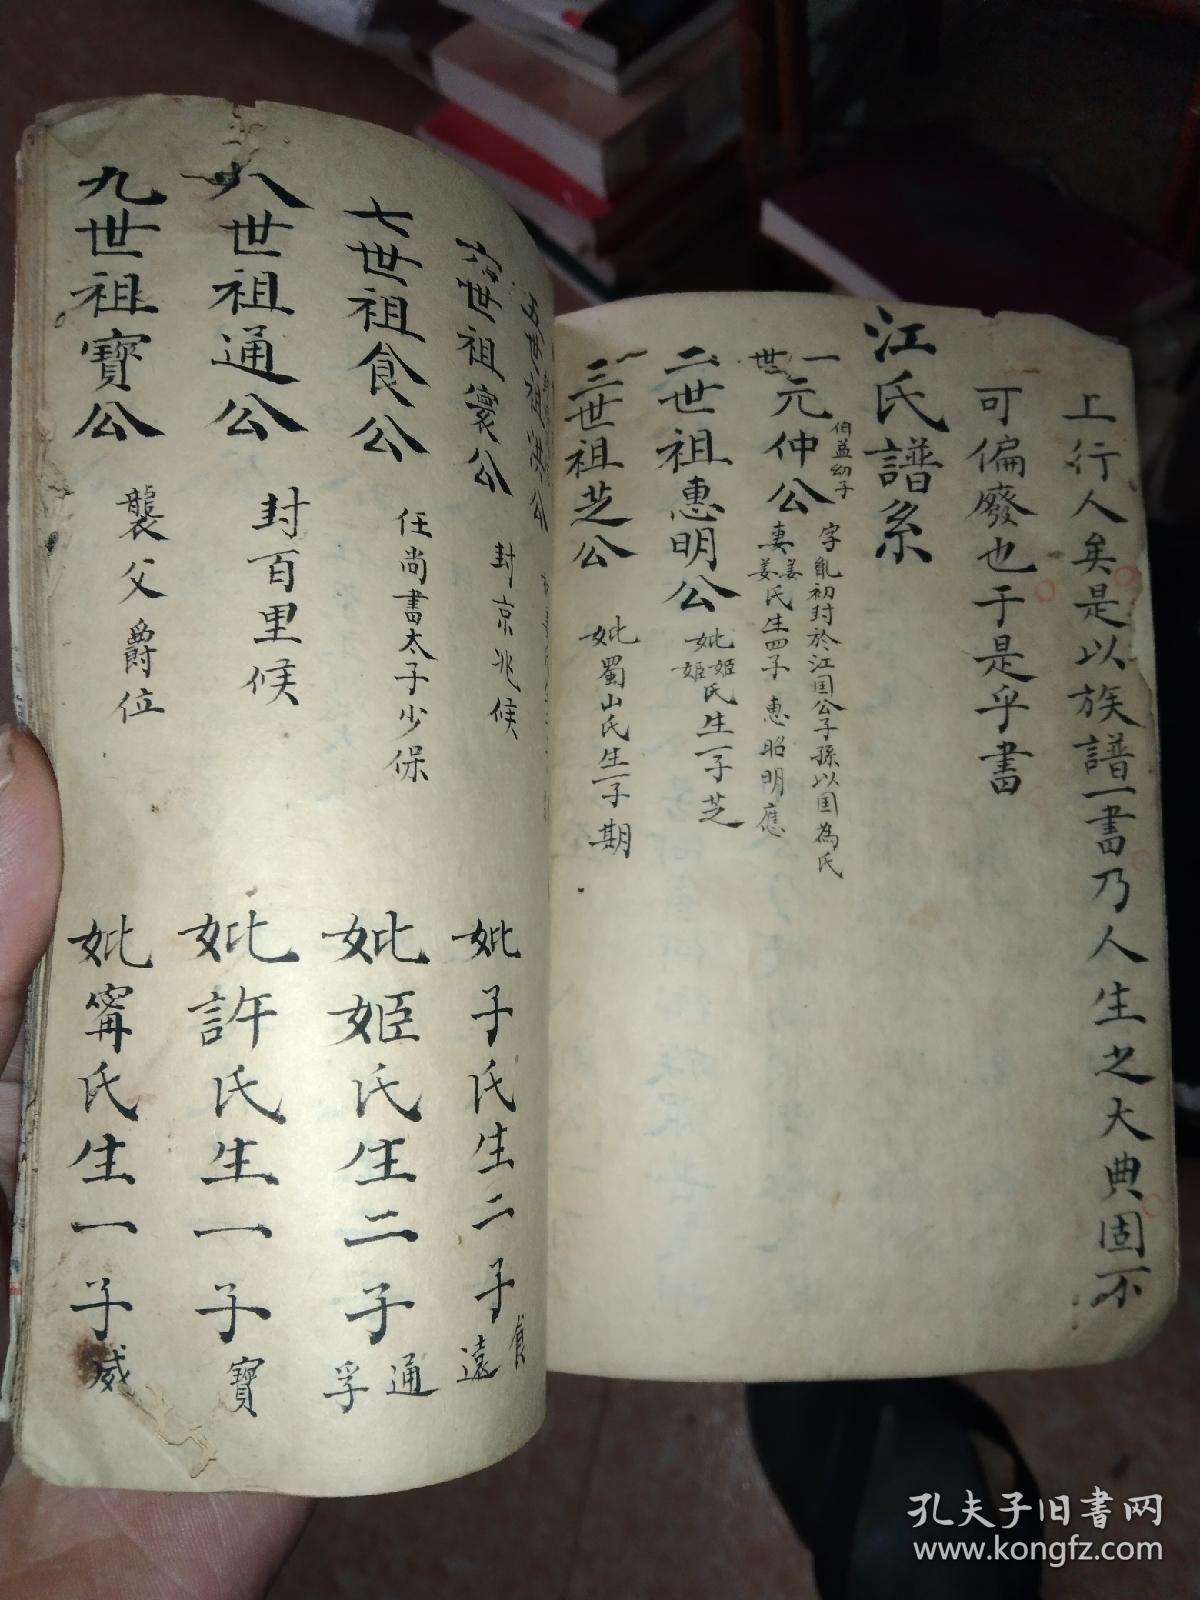 上行人矣是以族譜一書乃人生之大典固不
可偏廢也于是乎書
江氏譜系
一世
元仲公
伯益幼子
字亂初封於江国公子孫以国為氏
妻姜氏生四子 惠昭明應
二世祖惠明公
妣姬氏生一子芝
三世祖芝公
妣蜀山氏生一子期
五世祖淇公
六世祖寰公 封京兆候 妣子氏生二子
食
遠
七世祖食公 任尚書太子少保 妣姬氏生二子
通
孚
八世祖通公 封百里候 妣許氏生一子寶
九世祖寶公 襲父爵位 妣甯氏生一子威
孔夫子旧書网
www.kongfz.com